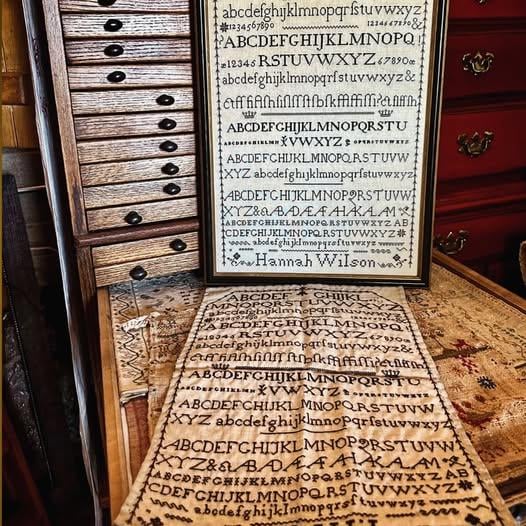 abcdefghijklmnopqrſstuvwxyz
1234567890 1234567890 &
ABCDEFGHIJKLMNOPQ
12345 RSTUVWXYZ 67890
abcdefghijklmnopqrſstuvwxyz&
ABCDEFGHIJKLMNOPQRSTU
ABCDEFGHIJKLMN XVWXYZ OPQRSTUVWXYZ
ABCDEFGHIJKLMNOPQRSTUVW
XYZ abcdefghijklmnopqrſstuvwxyz
ABCDEFGHIJKLMNOPQRSTUVW
XYZ&
ABCDEFGHIJKLMNOPQRSTUVWXYZ AB
CDEFGHIJKLMNOPQRSTUVWXYZ
abcdefghijklmnopqrſstuvwxyz
Hannah Wilson
ABCDEFGHIJKL
MNOPQRSTUVWXYZ
ABCDEFGHIJKLMNOPQ
RSTUVWXYZ
abcdefghijklmnopqrſstuvwxyz&
ABCDEFGHIJKLMNOPQRSTU
ABCDEFGHIJKLMN XVWXYZ OPQRSTUVWXYZ
ABCDEFGHIJKLMNOPQRSTUVW
XYZ abcdefghijklmnopqrſstuvwxyz
ABCDEFGHIJKLMNOPQRSTUVW
XYZ&
ABCDEFGHIJKLMNOPQRSTUVWXYZ AB
CDEFGHIJKLMNOPQRSTUVWXYZ
abcdefghijklmnopqrſstuvwxyz